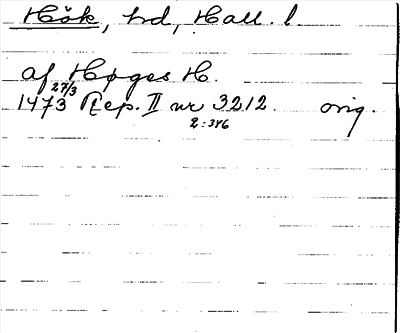 Hök, hd, Hall. l.
af Høges H.
27/3
1473 Rep. II nr 3212. orig.
2:386